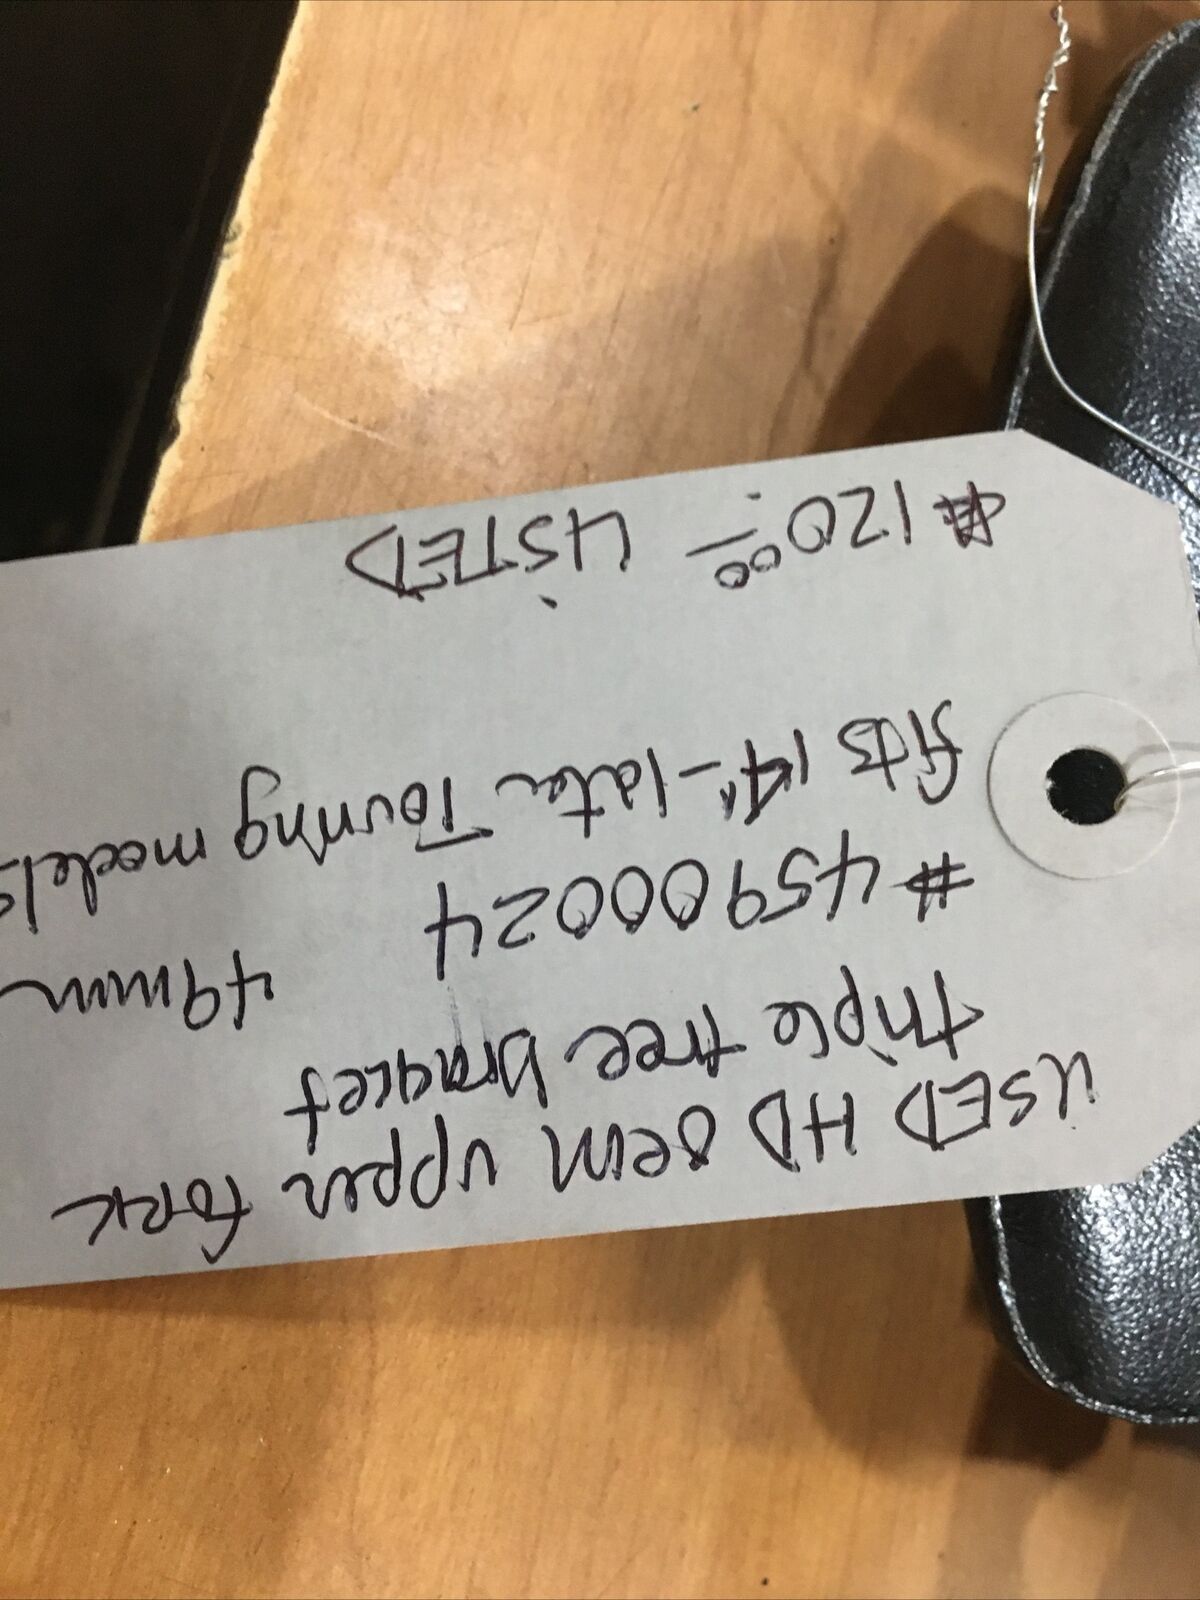 USED HD oem upper fork
triple tree bracket
#45900024 49mm
fits 14'-later Touring models
$120.00 LISTED